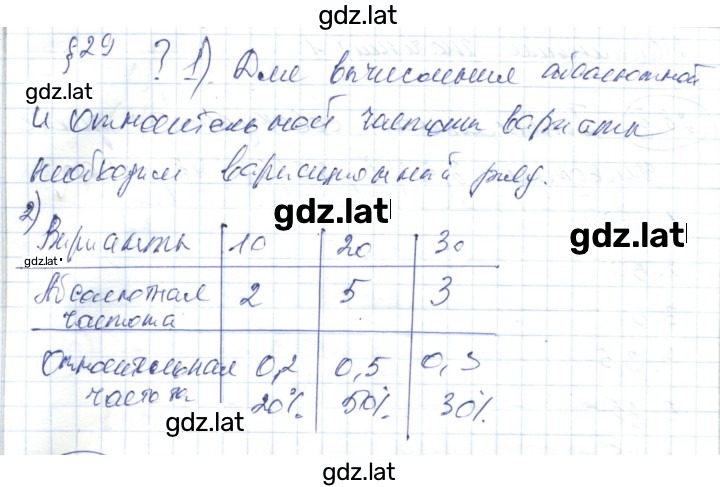 gdz.lat
§29 ? 1) Для вычисления абсолютной
gdz.lat
и относительной частоты варианты
необходим вариационный ряд.
gdz.lat
gdz.lat
2)
Варианты 10 20 30
gdz.lat
Абсолютная частота 2 5 3
Относительная 0,2 0,5 0,3
частота 20% 50% 30%
gdz.lat
gdz.lat